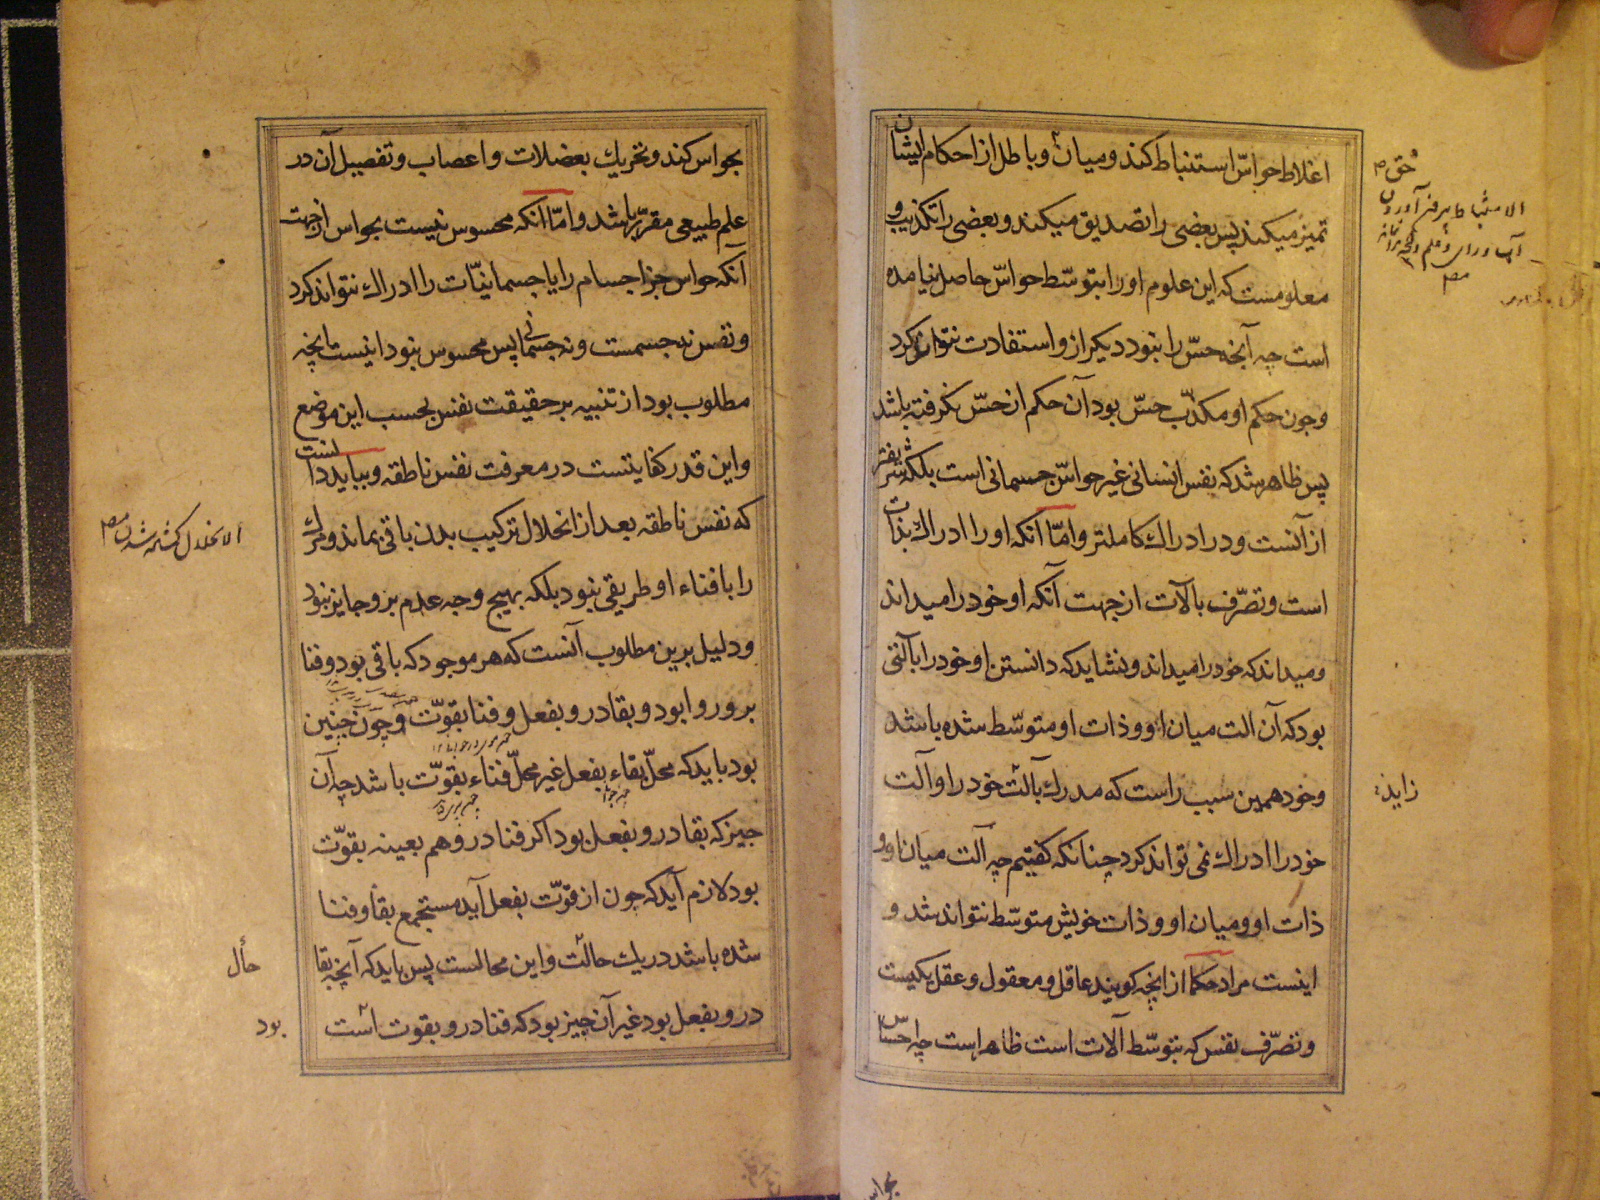 اغلاط حواسّ استنباط کند و میان و باطل از احکام ایشان
تمیز میکند پس بعضی را تصدیق میکند و بعضی را تکذیب و
معلومست که این علوم او را بتوسّط حواسّ حاصل نیامده
است چه آنچه حسّ را نبود دیکر ازو استفادت نتوان کرد
و چون حکم او مکذّب حسّ بود آن حکم از حسّ نکرفته باشد
پس ظاهر شد که نفس انسانی غیر حواسّ جسمانی است بلکه شریفتر
از آنست و در ادراک کاملتر و امّا آنکه او را ادراک بذات
است و تصرّف بآلات از جهت آنکه او خود را میداند
و میداند که خود را میداند و نشاید که دانستن او خود را بآلتی
بود که آن الت میان او و ذات او متوسّط شده باشد
و خود همین سبب راست که مدرک بآلت خود را و آلت
خود را ادراک نمی تواند کرد چنانکه کفتیم چه آلت میان او و
ذات او و میان او و ذات خویش متوسّط نتواند شد و
اینست مراد حکما از آنچه کویند عاقل و معقول و عقل یکیست
و تصرّف نفس که بتوسّط آلات است ظاهر است چه احساس
حق
زاید
بحواس کند و تحریک بعضلات و اعصاب و تفصیل آن در
علم طبیعی مقرّر باشد و امّا آنکه محسوس نیست بحواس از جهت
آنکه حواس جز اجسام را یا جسمانیّات را ادراک نتواند کرد
و نفس نه جسمست و نه جسمانی پس محسوس نبود اینست آنچه
مطلوب بود از تنبیه بر حقیقت نفس بحسب این موضع
و این قدر کفایتست در معرفت نفس ناطقه و بباید دانست
که نفس ناطقه بعد از انحلال ترکیب بدن باقی بماند و مرک
را بافناء او طریقی نبود بلکه بهیچ وجه عدم برو جایز نبود
و دلیل برین مطلوب آنست که هر موجود که باقی بود و فنا
برو روا بود و بقا درو بفعل و فنا بقوّت و چون چنین
بود باید که محلّ بقاء بفعل غیر محلّ فناء بقوّت باشد چه آن
چیز که بقا درو بفعل بود اکر فنا درو هم بعینه بقوّت
بود لازم آید که چون از قوّت بفعل آید مستجمع بقا و فنا
شده باشد در یک حالت و این محالست پس باید که آنچه بقا
درو بفعل بود غیر آن چیز بود که فنا درو بقوت است
الانحلال کشاده شدن
حال
بود